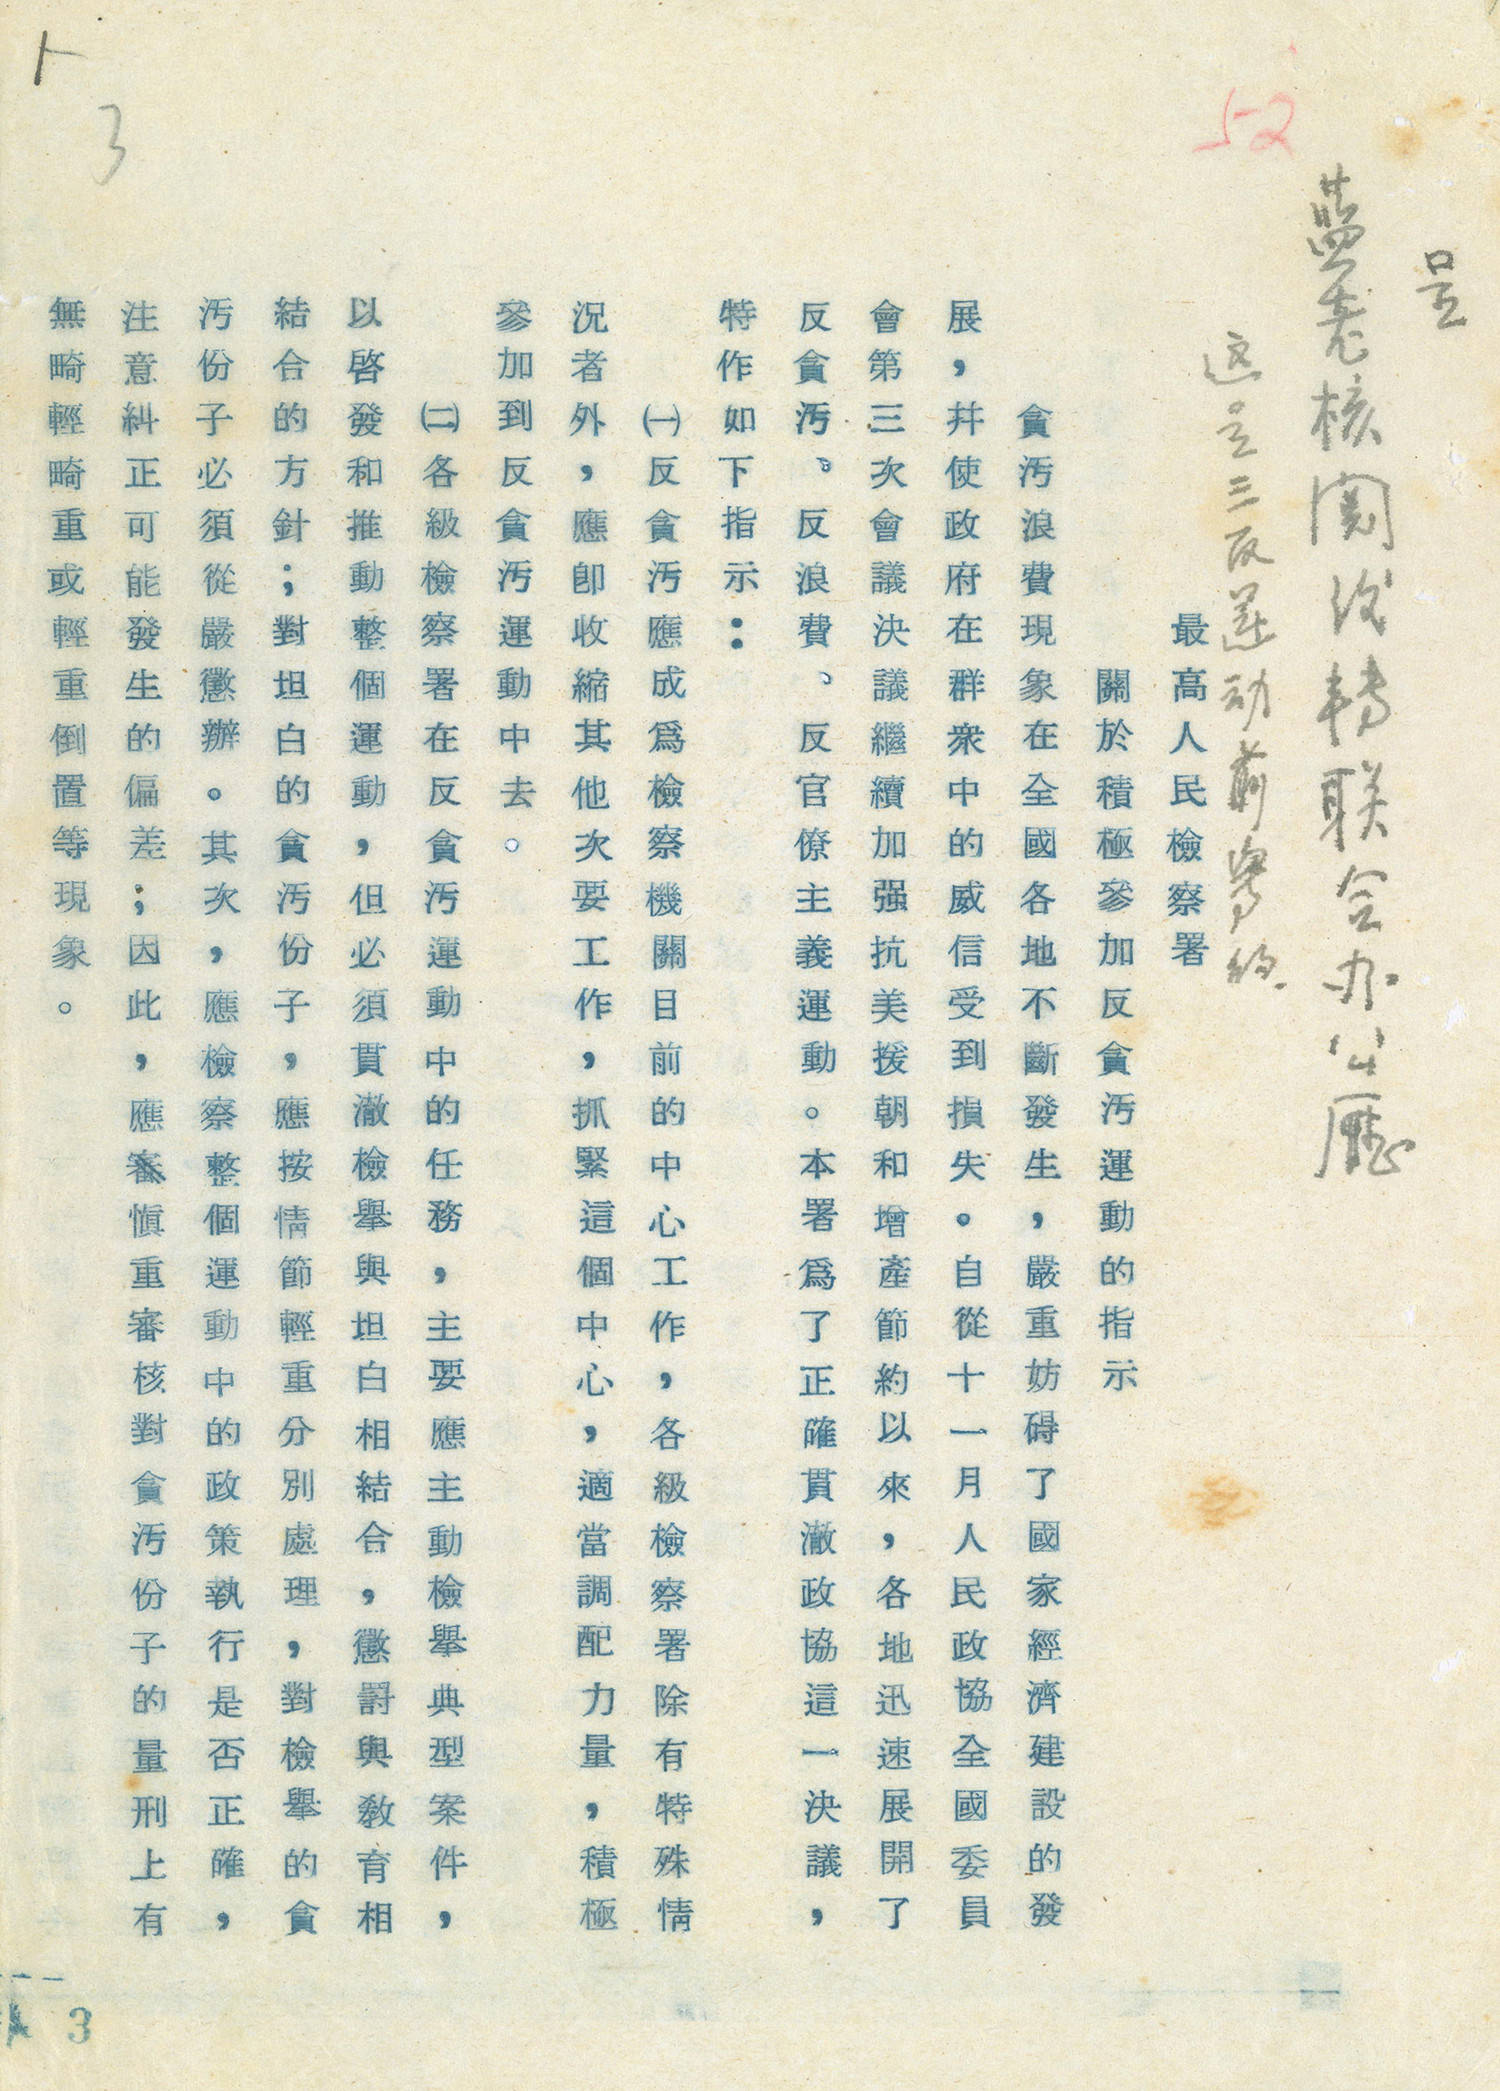 呈
蓝老核阅后转联合办公厅
这是三反运动前写的
52
最高人民檢察署
關於積極參加反貪汚運動的指示
貪汚浪費現象在全國各地不斷發生，嚴重妨碍了國家經濟建設的發
展，幷使政府在群衆中的威信受到損失。自從十一月人民政協全國委員
會第三次會議決議繼續加强抗美援朝和增產節約以來，各地迅速展開了
反貪汚、反浪費、反官僚主義運動。本署爲了正確貫澈政協這一決議，
特作如下指示：
㈠反貪汚應成爲檢察機關目前的中心工作，各級檢察署除有特殊情
況者外，應卽收縮其他次要工作，抓緊這個中心，適當調配力量，積極
參加到反貪汚運動中去。
㈡各級檢察署在反貪汚運動中的任務，主要應主動檢舉典型案件，
以啓發和推動整個運動，但必須貫澈檢舉與坦白相結合，懲罰與敎育相
結合的方針；對坦白的貪汚份子，應按情節輕重分別處理，對檢舉的貪
汚份子必須從嚴懲辦。其次，應檢察整個運動中的政策執行是否正確，
注意糾正可能發生的偏差；因此，應審愼重審核對貪汚份子的量刑上有
無畸輕畸重或輕重倒置等現象。
3
3